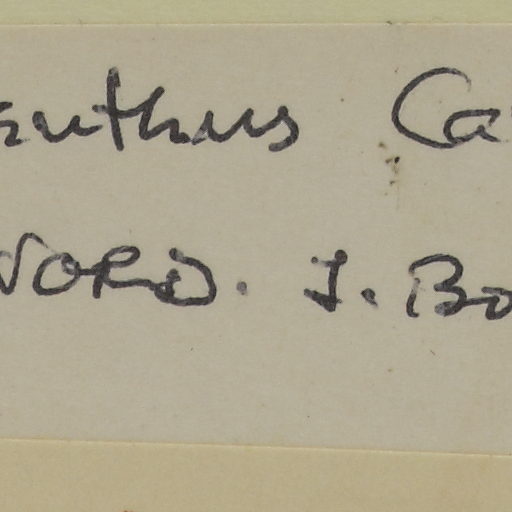 anthus Ca
NORD. J. Bo